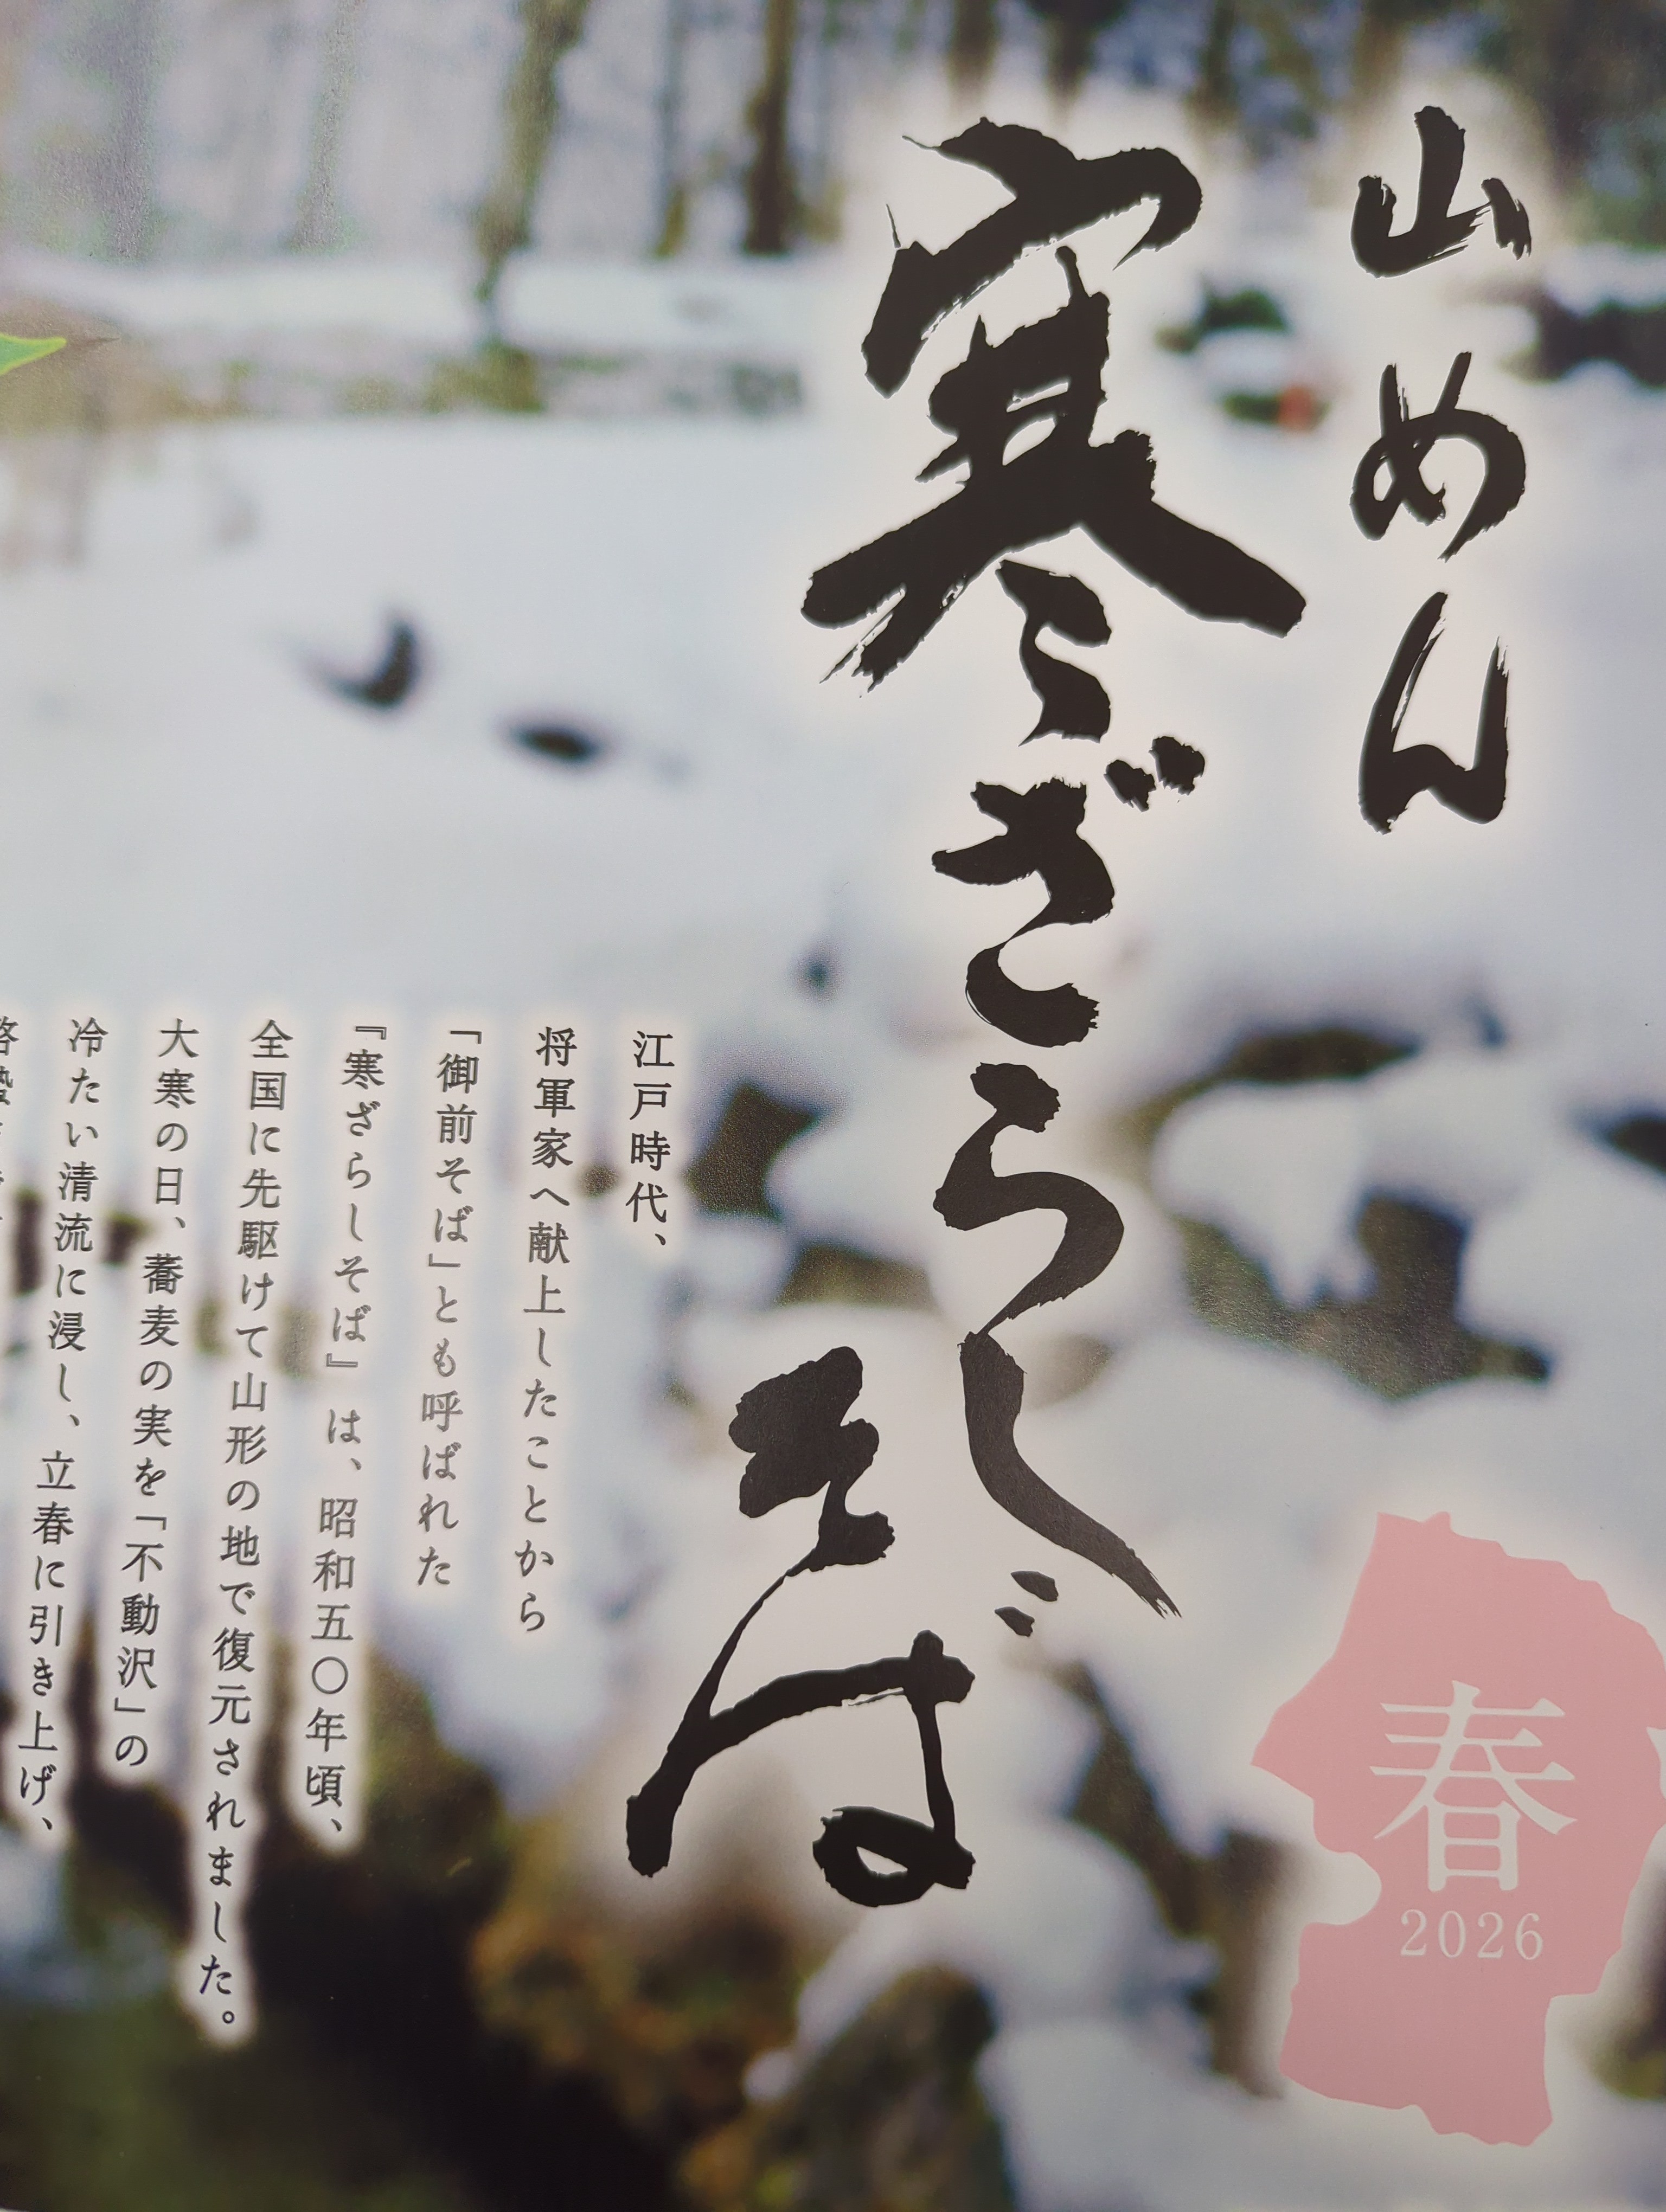 山めん
寒ざらし
そば
江戸時代、
将軍家へ献上したことから
「御前そば」とも呼ばれた
『寒ざらしそば』は、昭和五〇年頃、
全国に先駆けて山形の地で復元されました。
大寒の日、蕎麦の実を「不動沢」の
冷たい清流に浸し、立春に引き上げ、
春
2026